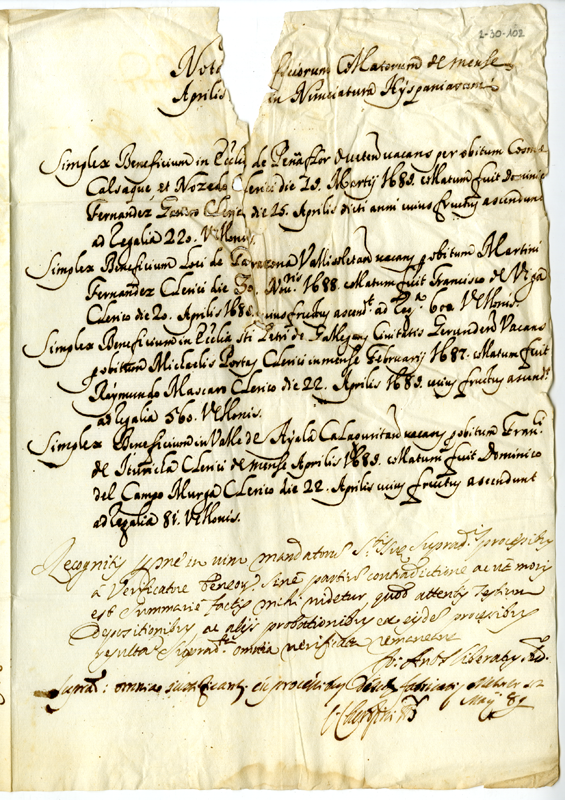 2-30-102
Not ficiorum collatorum de mense
Aprilis in Nunciatura Hyspaniarum
Simplex Beneficium in Ecclia de Peñaflor Oveten vacans per obitum Cosme
Calsaque et Nozedo Clerici die 29. Martij 1689. collatum fuit Dominico
Fernandez Clerico die 25. Aprilis dicti anni cuius fructus ascendunt
ad Regalia 220. Vellonis.
Simplex Beneficium Loci de Tarazona Vallisoletan vacans p obitum Martini
Fernandez Clerici die 30. Novris 1688. collatum fuit Francisco de Viga
Clerico die 20. Aprilis 1689. cuius fructus ascendt ad Rega 600 Vellonis.
Simplex Beneficium in Ecclia sti Petri de Galligans Civitatis Gerunden Vacans
p obitum Michaelis Portas Clerici in mense Februarij 1687. collatum fuit
Raymundo Mascaro Clerico die 22. Aprilis 1689. cuius fructus ascendt
ad Regalia 560. Vellonis.
Simplex Beneficium in Valle de Ayala Calaguritan vacans p obitum Franci
de Clerici de mense Aprilis 1689. collatum fuit Dominico
del Campo Murga Clerico die 22. Aprilis cuius fructus ascendunt
ad Regalia 81. Vellonis.
Recognitis p me in vim mandatorum processibus
a Verificatore sine partis contradictione ac ut moris
est summarie factis mihi videtur quod attentis testium
depositionibus ac alijs probationibus ex eisdem processibus
resultat suprad omnia verificata remanere
Jo: Antus Liberatus
suprad: omnia
Maij 89